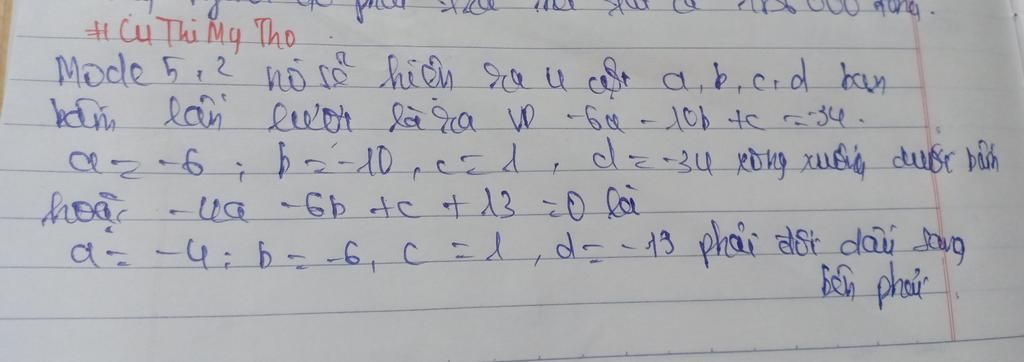 phải 000 đồng.
# Cù Thị Mỹ Tho
Mode 5, 2 nó sẽ hiện ra 4 cột a, b, c, d bạn
bấm lần lượt là ra VD -6a - 10b + c = -34.
a = -6 ; b = -10, c = 1, d = -34 xong xuống dưới bấm
hoặc -4a - 6b + c + 13 = 0 là
a = -4 ; b = -6, c = 1, d = -13 phải đổi dấu sang
bên phải.